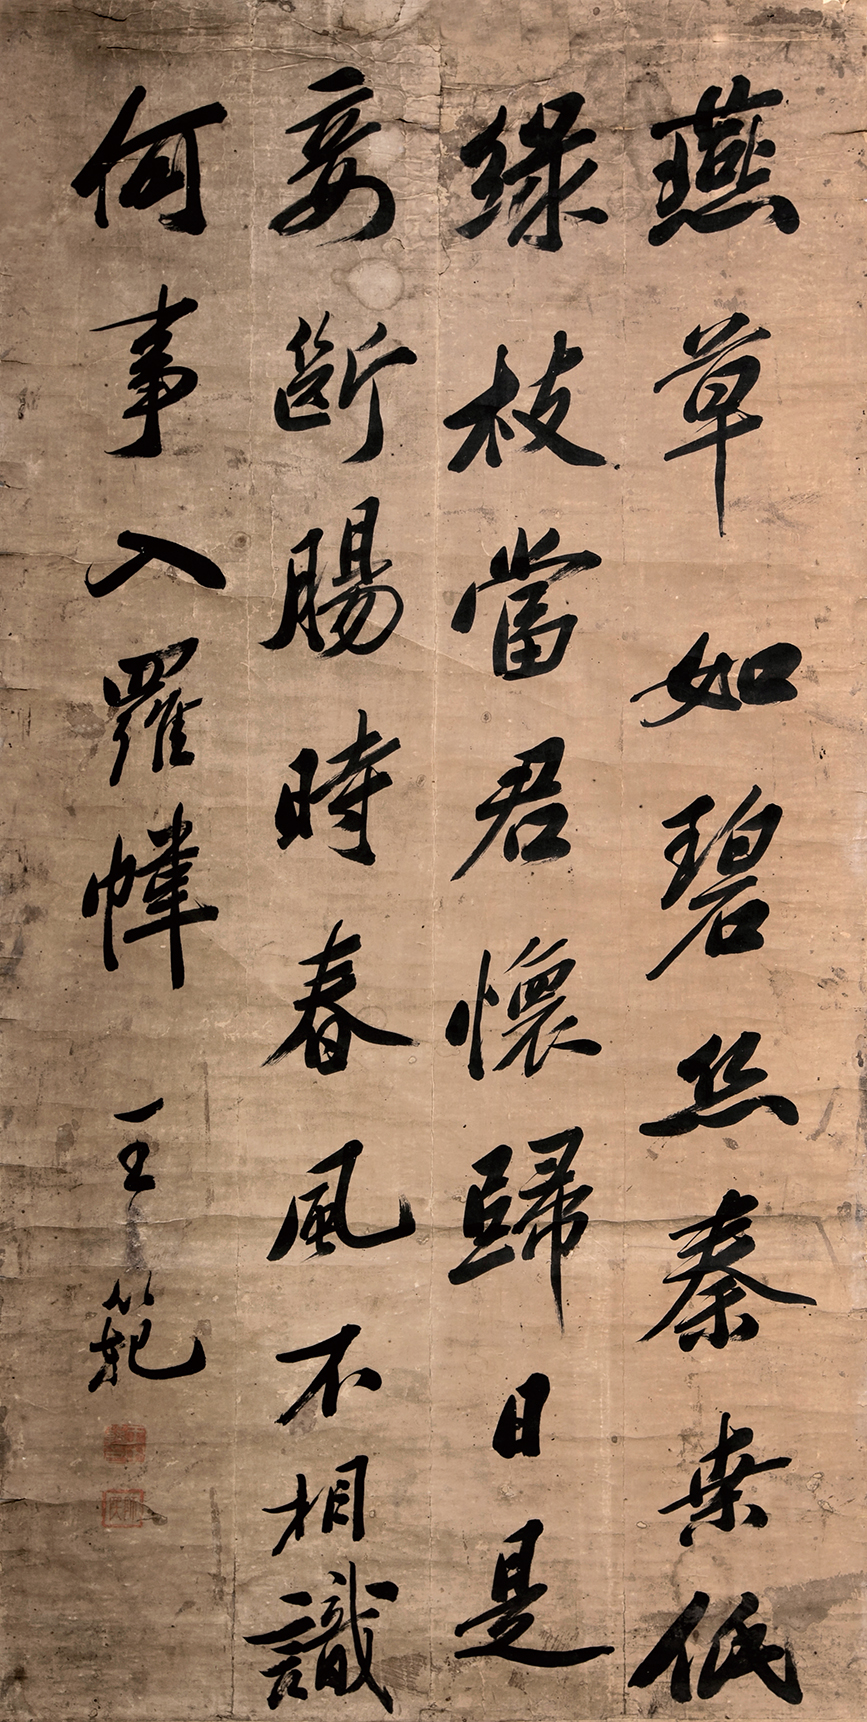 燕草如碧丝秦桒低
緑枝當君懷歸日是
妾斷腸時春風不相識
何事入羅幃
王範